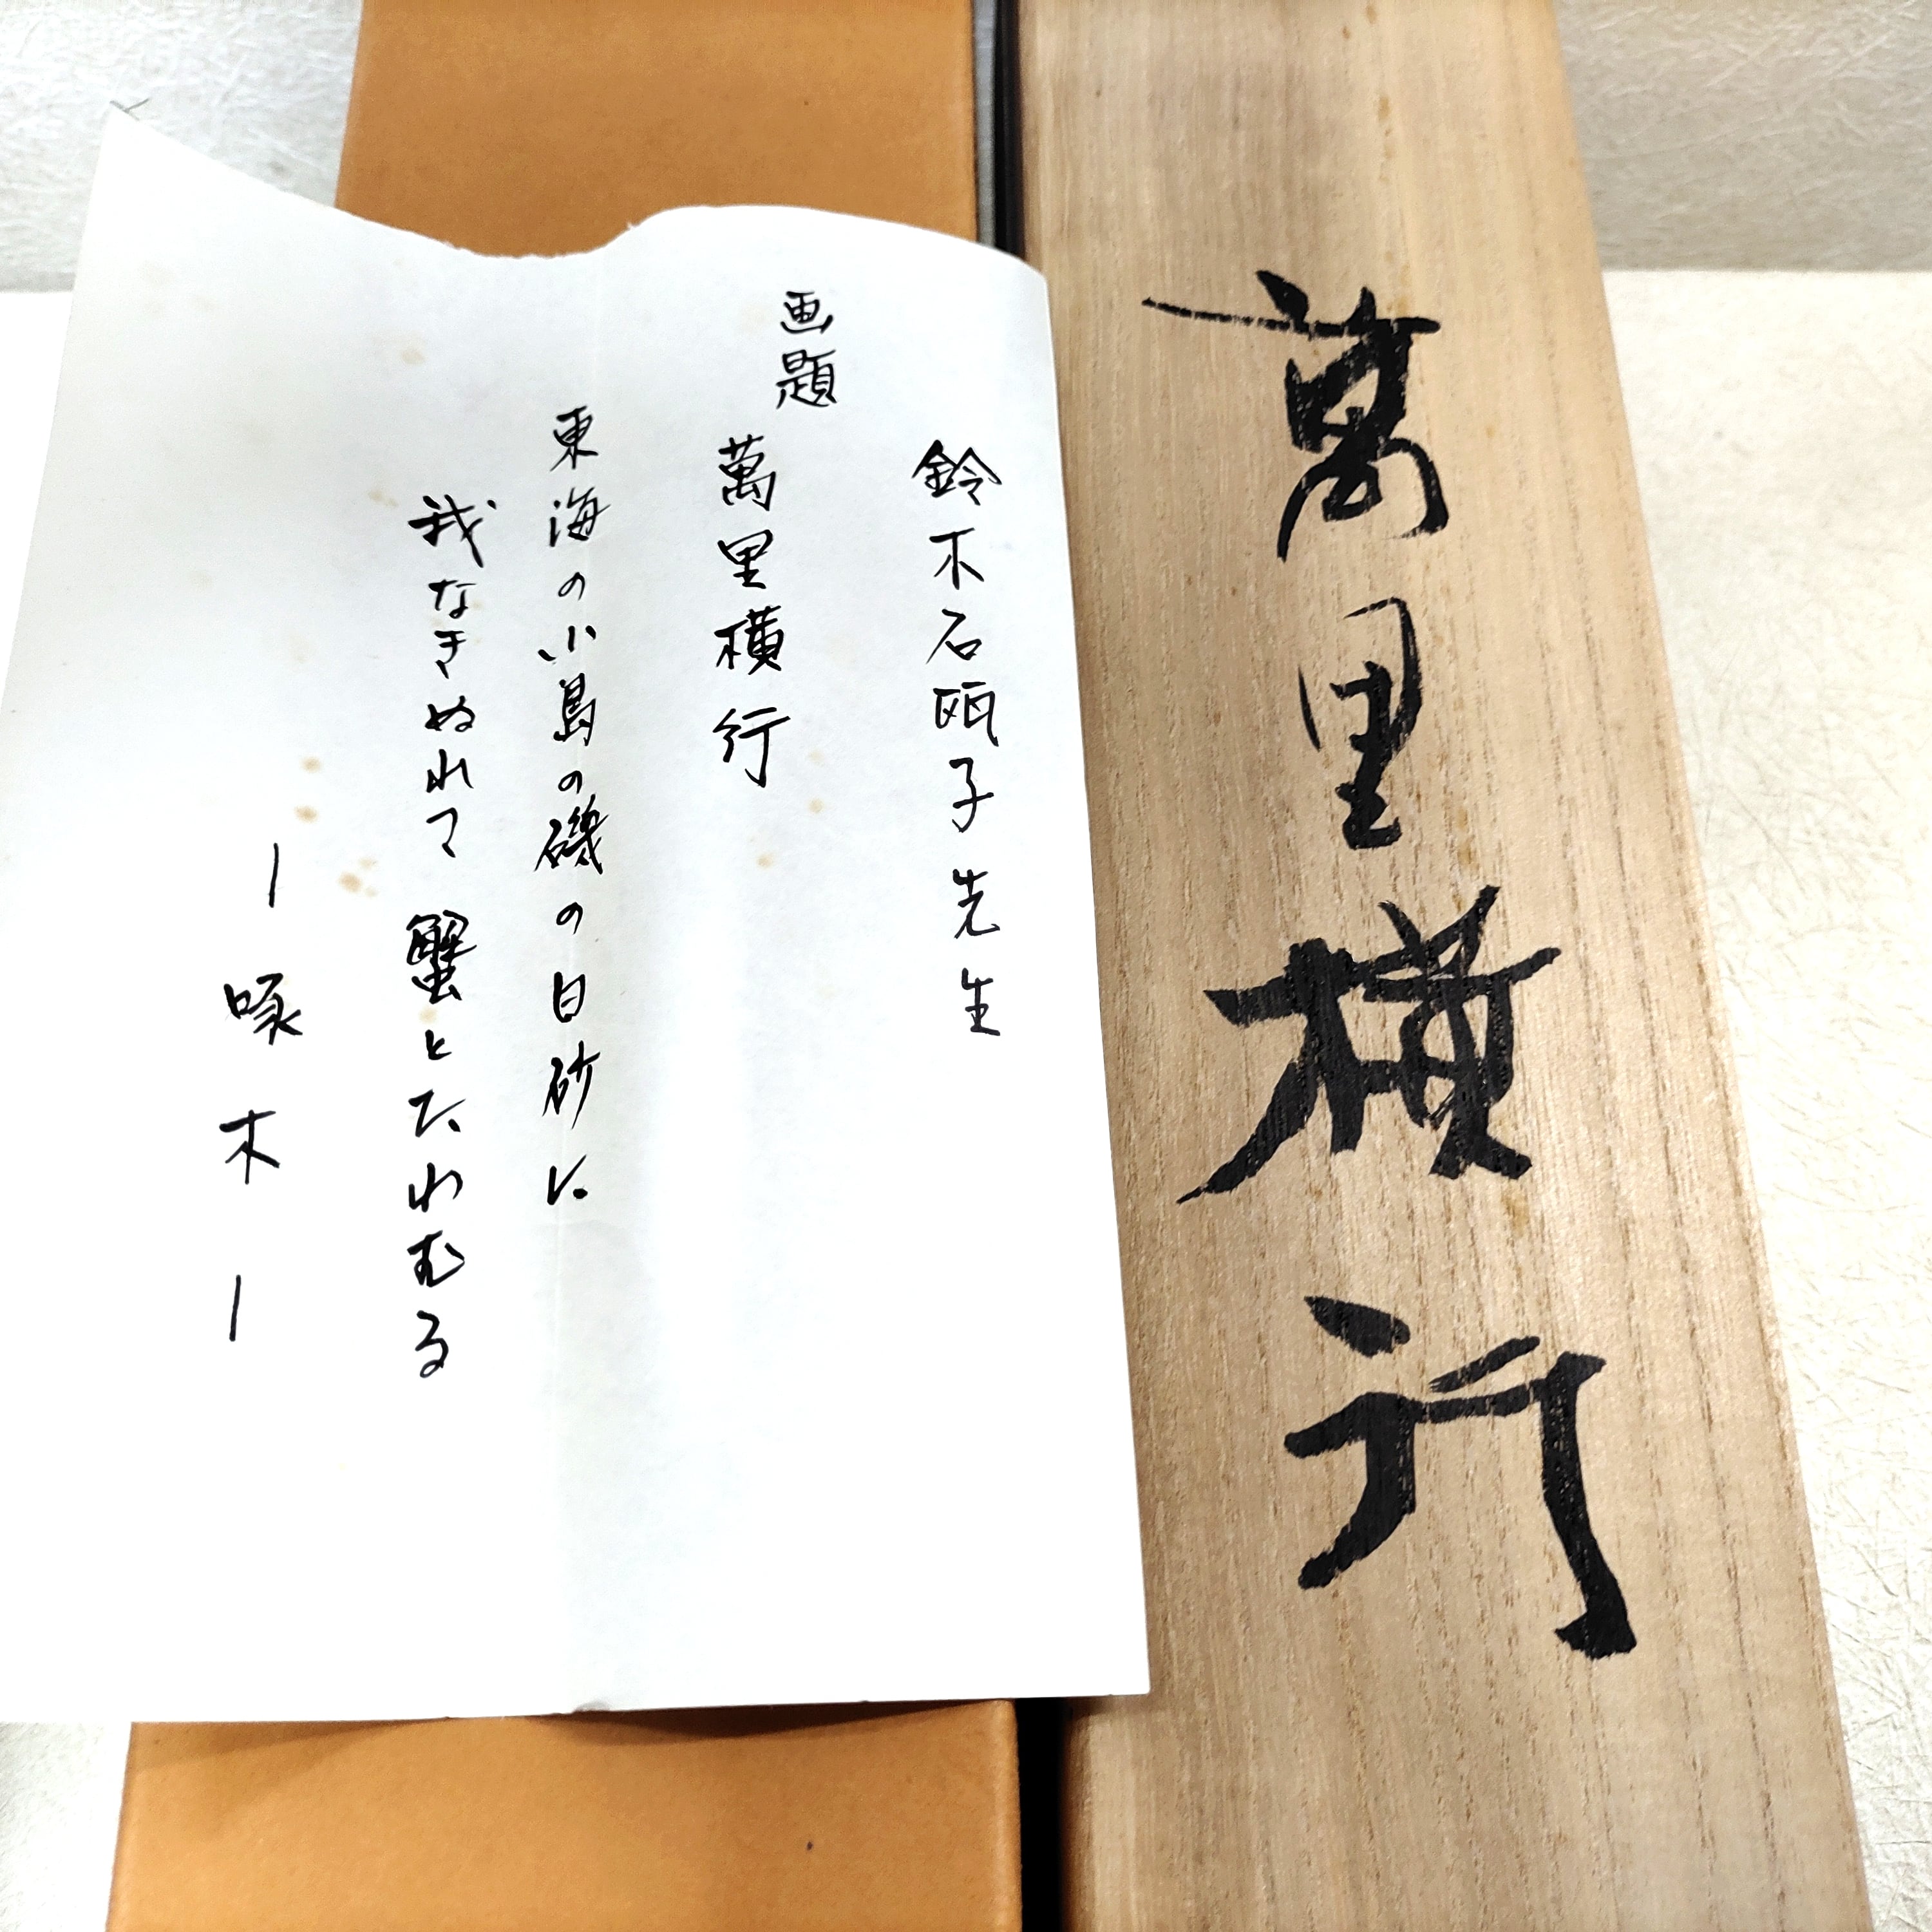 萬里横行
鈴木石甌子先生
画題
萬里横行
東海の小島の磯の白砂に
我なきぬれて蟹とたわむる
ー啄木ー